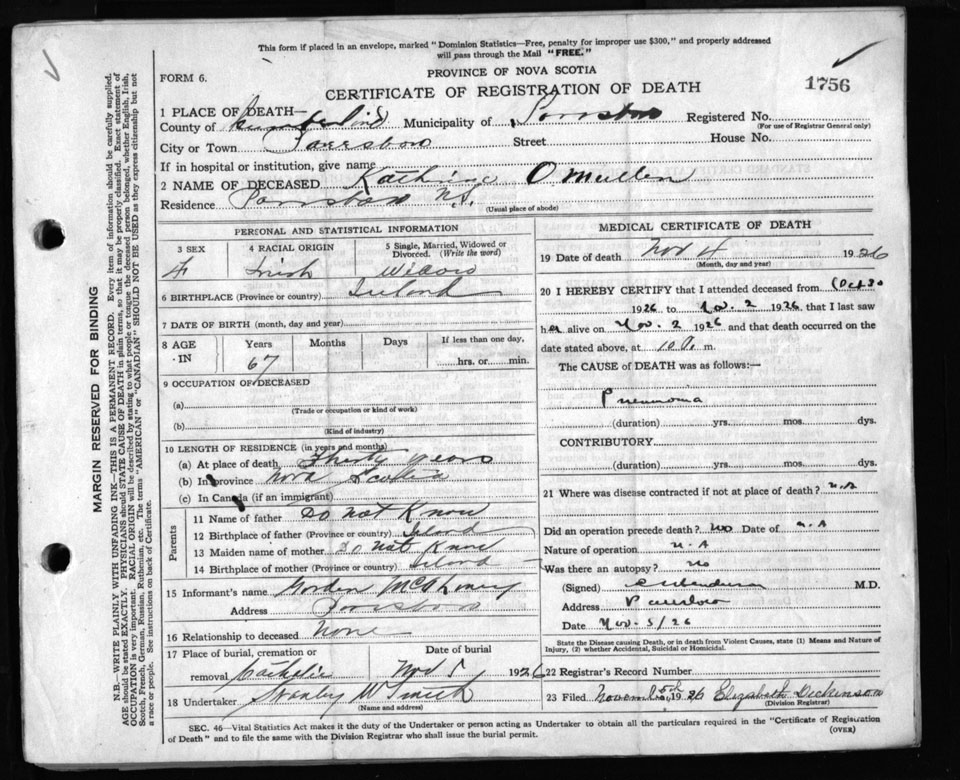 This form if placed in an envelope, marked "Dominion Statistics—Free, penalty for improper use $300," and properly addressed
will pass through the Mail "FREE."
PROVINCE OF NOVA SCOTIA
FORM 6.
CERTIFICATE OF REGISTRATION OF DEATH
1756
1 PLACE OF DEATH—
County of Cumberland Municipality of Parrsboro Registered No.
(For use of Registrar General only)
City or Town Parrsboro Street House No.
If in hospital or institution, give name
2 NAME OF DECEASED Kathrine O Mullen
Residence Parrsboro N.S.
(Usual place of abode)
PERSONAL AND STATISTICAL INFORMATION
3 SEX 4 RACIAL ORIGIN 5 Single, Married, Widowed or
Divorced. (Write the word)
F Irish Widow
6 BIRTHPLACE (Province or country) Ireland
7 DATE OF BIRTH (month, day and year)
8 AGE IN Years Months Days If less than one day,
67 hrs. or min.
9 OCCUPATION OF DECEASED
(a)
(Trade or occupation or kind of work)
(b)
(Kind of industry)
10 LENGTH OF RESIDENCE (in years and months)
(a) At place of death Thirty years
(b) In province Nova Scotia
(c) In Canada (if an immigrant)
Parents
11 Name of father Do Not Know
12 Birthplace of father (Province or country) Ireland
13 Maiden name of mother Do Not Know
14 Birthplace of mother (Province or country) Ireland
15 Informant's name Gordon
Address Parrsboro
16 Relationship to deceased None
17 Place of burial, cremation or Date of burial
removal Catholic Nov 5 1926
18 Undertaker Stanley W Smith
(Name and address)
MEDICAL CERTIFICATE OF DEATH
19 Date of death Nov 4 1926
(Month, day and year)
20 I HEREBY CERTIFY that I attended deceased from Oct 30
1926 to Nov. 2 1926, that I last saw
her alive on Nov. 2 1926 and that death occurred on the
date stated above, at 10 P. m.
The CAUSE of DEATH was as follows:—
Pneumonia
(duration) yrs. mos. dys.
CONTRIBUTORY
(duration) yrs. mos. dys.
21 Where was disease contracted if not at place of death? N.A
Did an operation precede death? No Date of N.A
Nature of operation N.A
Was there an autopsy? No
(Signed) M.D.
Address Parrsboro
Date Nov. 5/26
State the Disease causing Death, or in death from Violent Causes, state (1) Means and Nature of
Injury, (2) whether Accidental, Suicidal or Homicidal.
22 Registrar's Record Number
23 Filed November 5th, 1926 Elizabeth Dickinson
(Division Registrar)
SEC. 46—Vital Statistics Act makes it the duty of the Undertaker or person acting as Undertaker to obtain all the particulars required in the "Certificate of Registration
of Death" and to file the same with the Division Registrar who shall issue the burial permit.
(OVER)
MARGIN RESERVED FOR BINDING
N.B.—WRITE PLAINLY WITH UNFADING INK—THIS IS A PERMANENT RECORD. Every item of information should be carefully supplied.
AGE should be stated EXACTLY. PHYSICIANS should STATE CAUSE OF DEATH in plain terms, so that it may be properly classified. Exact statement of
OCCUPATION is very important. RACIAL ORIGIN will be described by stating to what people or tongue the deceased person belonged, whether English, Irish,
Scotch, French, German, Russian, Ruthenian, etc. The terms "AMERICAN" or "CANADIAN" SHOULD NOT BE USED as they express citizenship but not
a race or people. See instructions on back of Certificate.